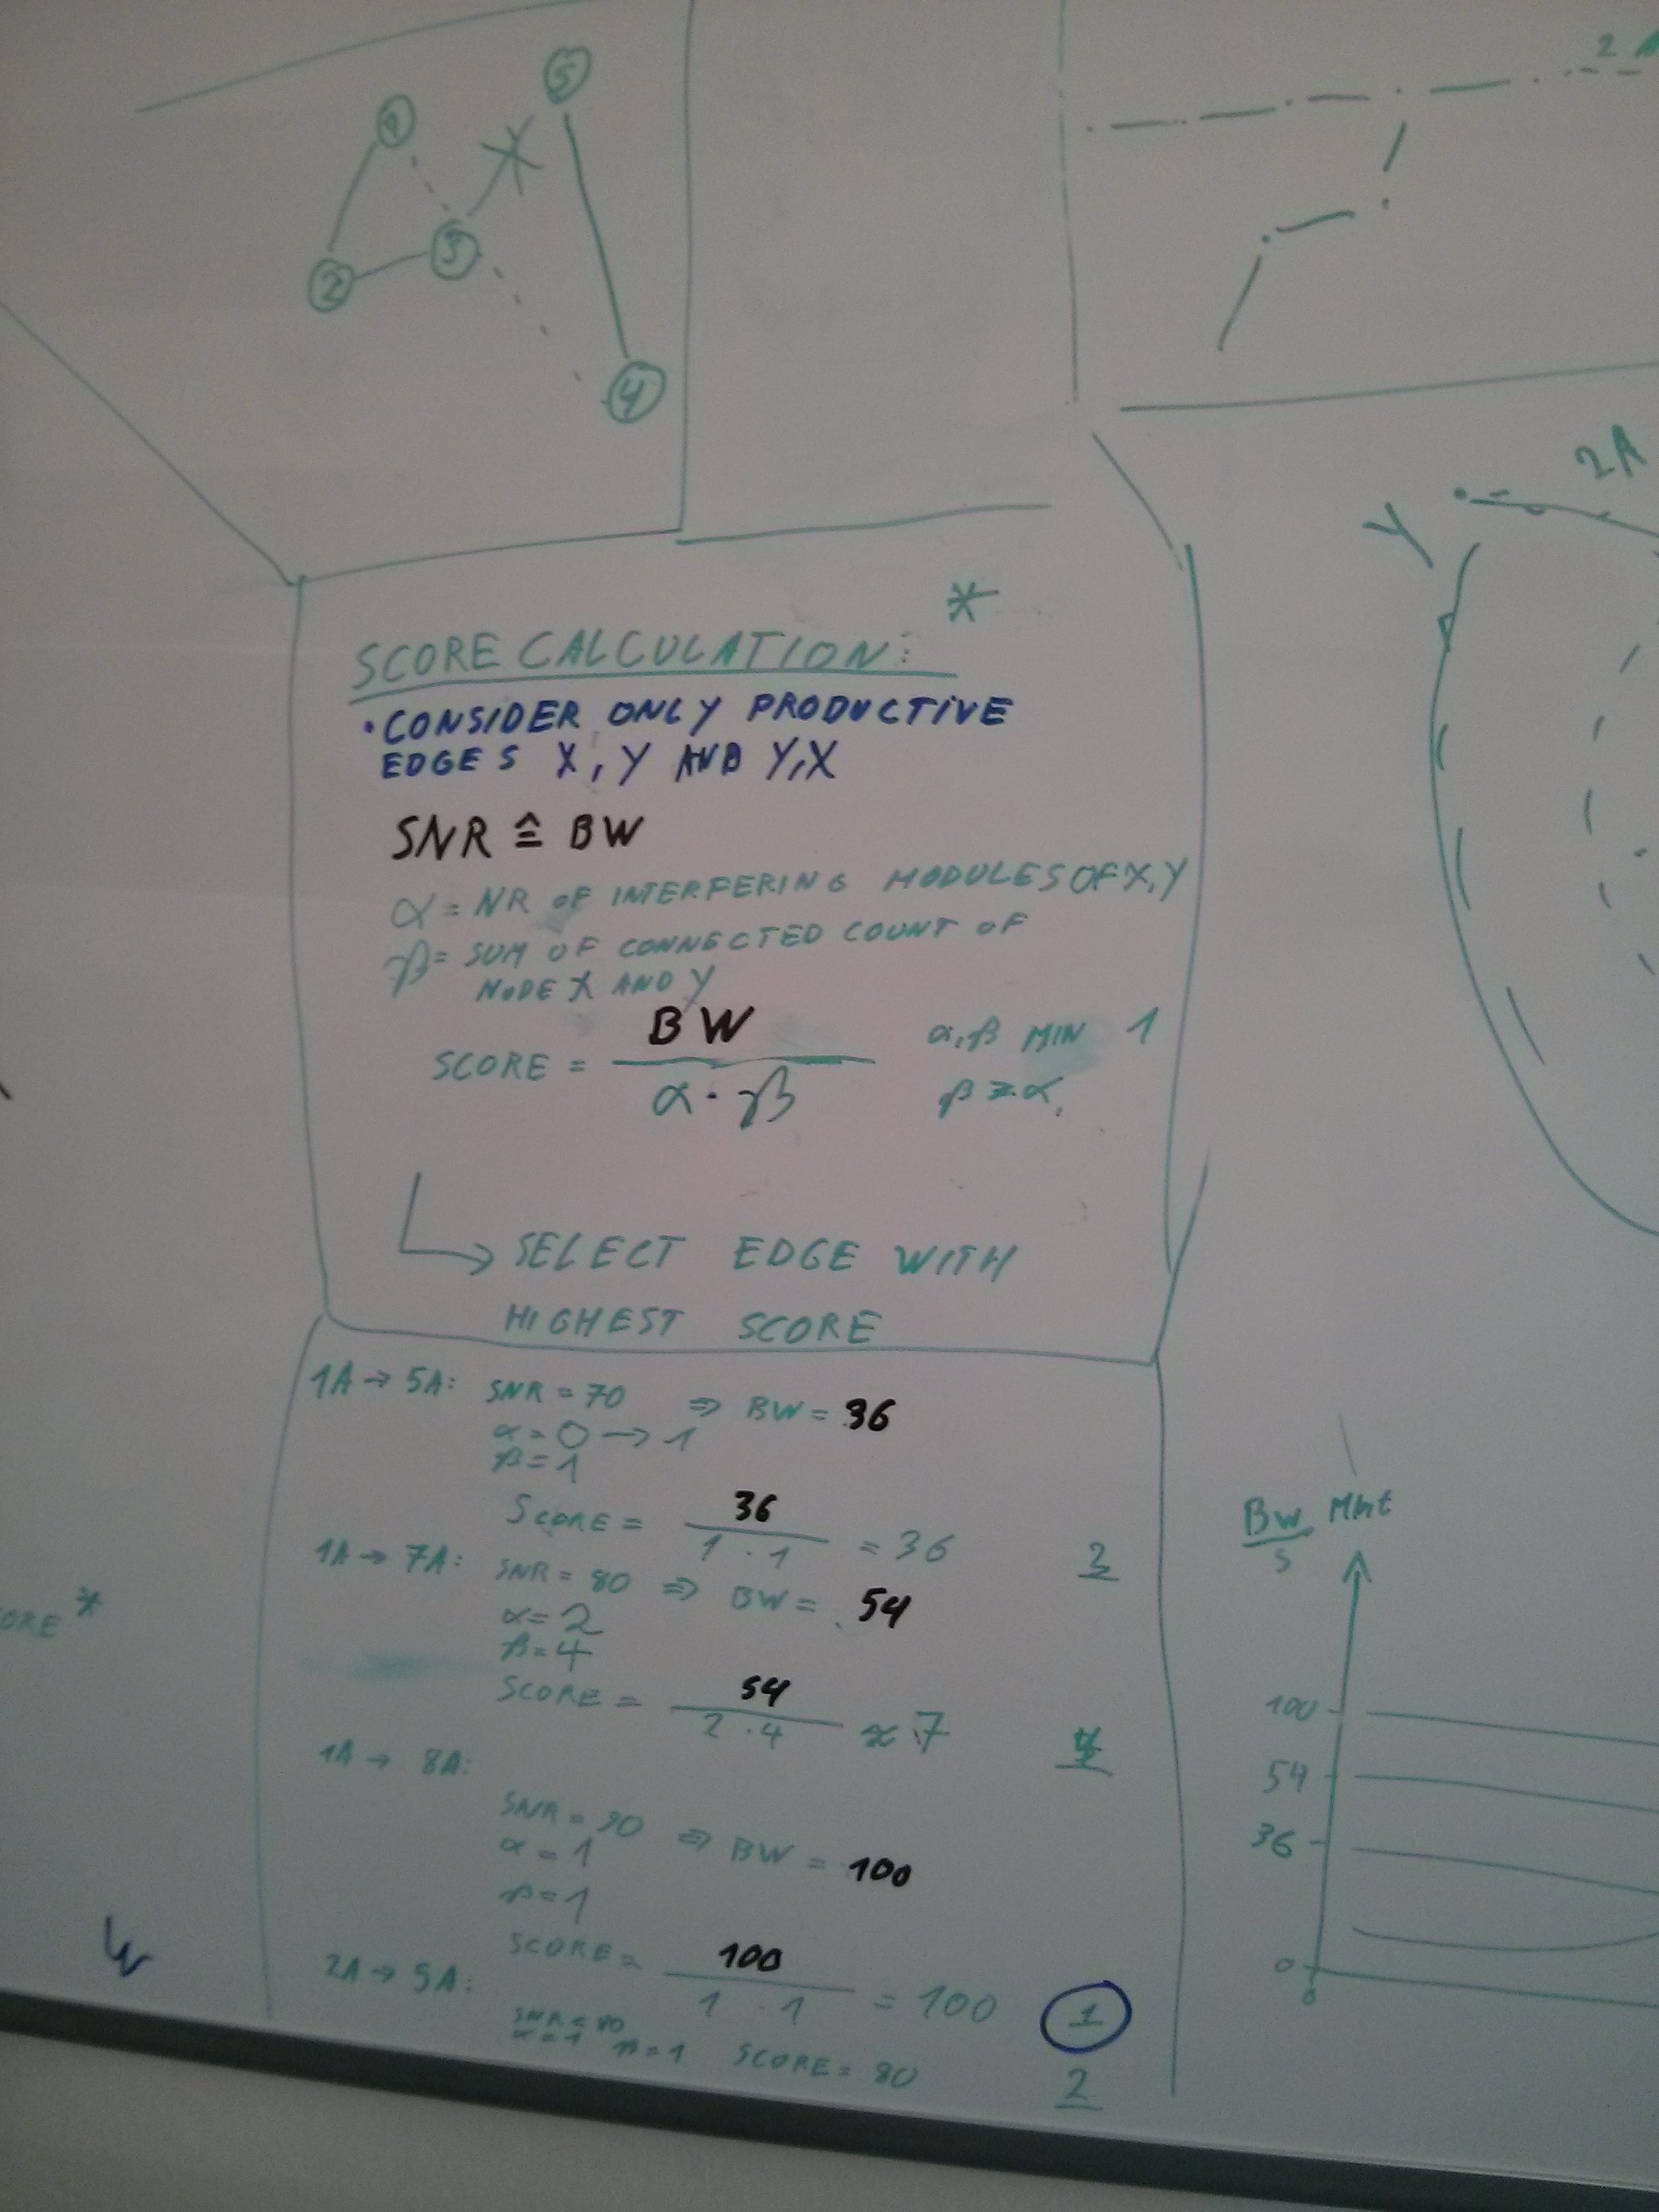 1
5
3
2
4
2A
2A
Y
*
SCORE CALCULATION:
• CONSIDER ONLY PRODUCTIVE
EDGES X, Y AND Y,X
SNR ≙ BW
α = NR OF INTERFERING MODULES OF X,Y
β = SUM OF CONNECTED COUNT OF
NODE X AND Y
SCORE = BW / α · β
α,β MIN 1
β ≥ α,
↳ SELECT EDGE WITH
HIGHEST SCORE
1A → 5A: SNR = 70 ⇒ BW = 36
α = 0 → 1
β = 1
SCORE = 36 / 1 · 1 = 36 3
1A → 7A: SNR = 80 ⇒ BW = 54
α = 2
β = 4
SCORE = 54 / 2 · 4 ≈ 7 4
1A → 8A:
SNR = 90 ⇒ BW = 100
α = 1
β = 1
SCORE = 100 / 1 · 1 = 100 1
2A → 5A:
SNR = 80
α = 1 β = 1 SCORE = 80 2
ORE *
BW
S
100
54
36
0
0